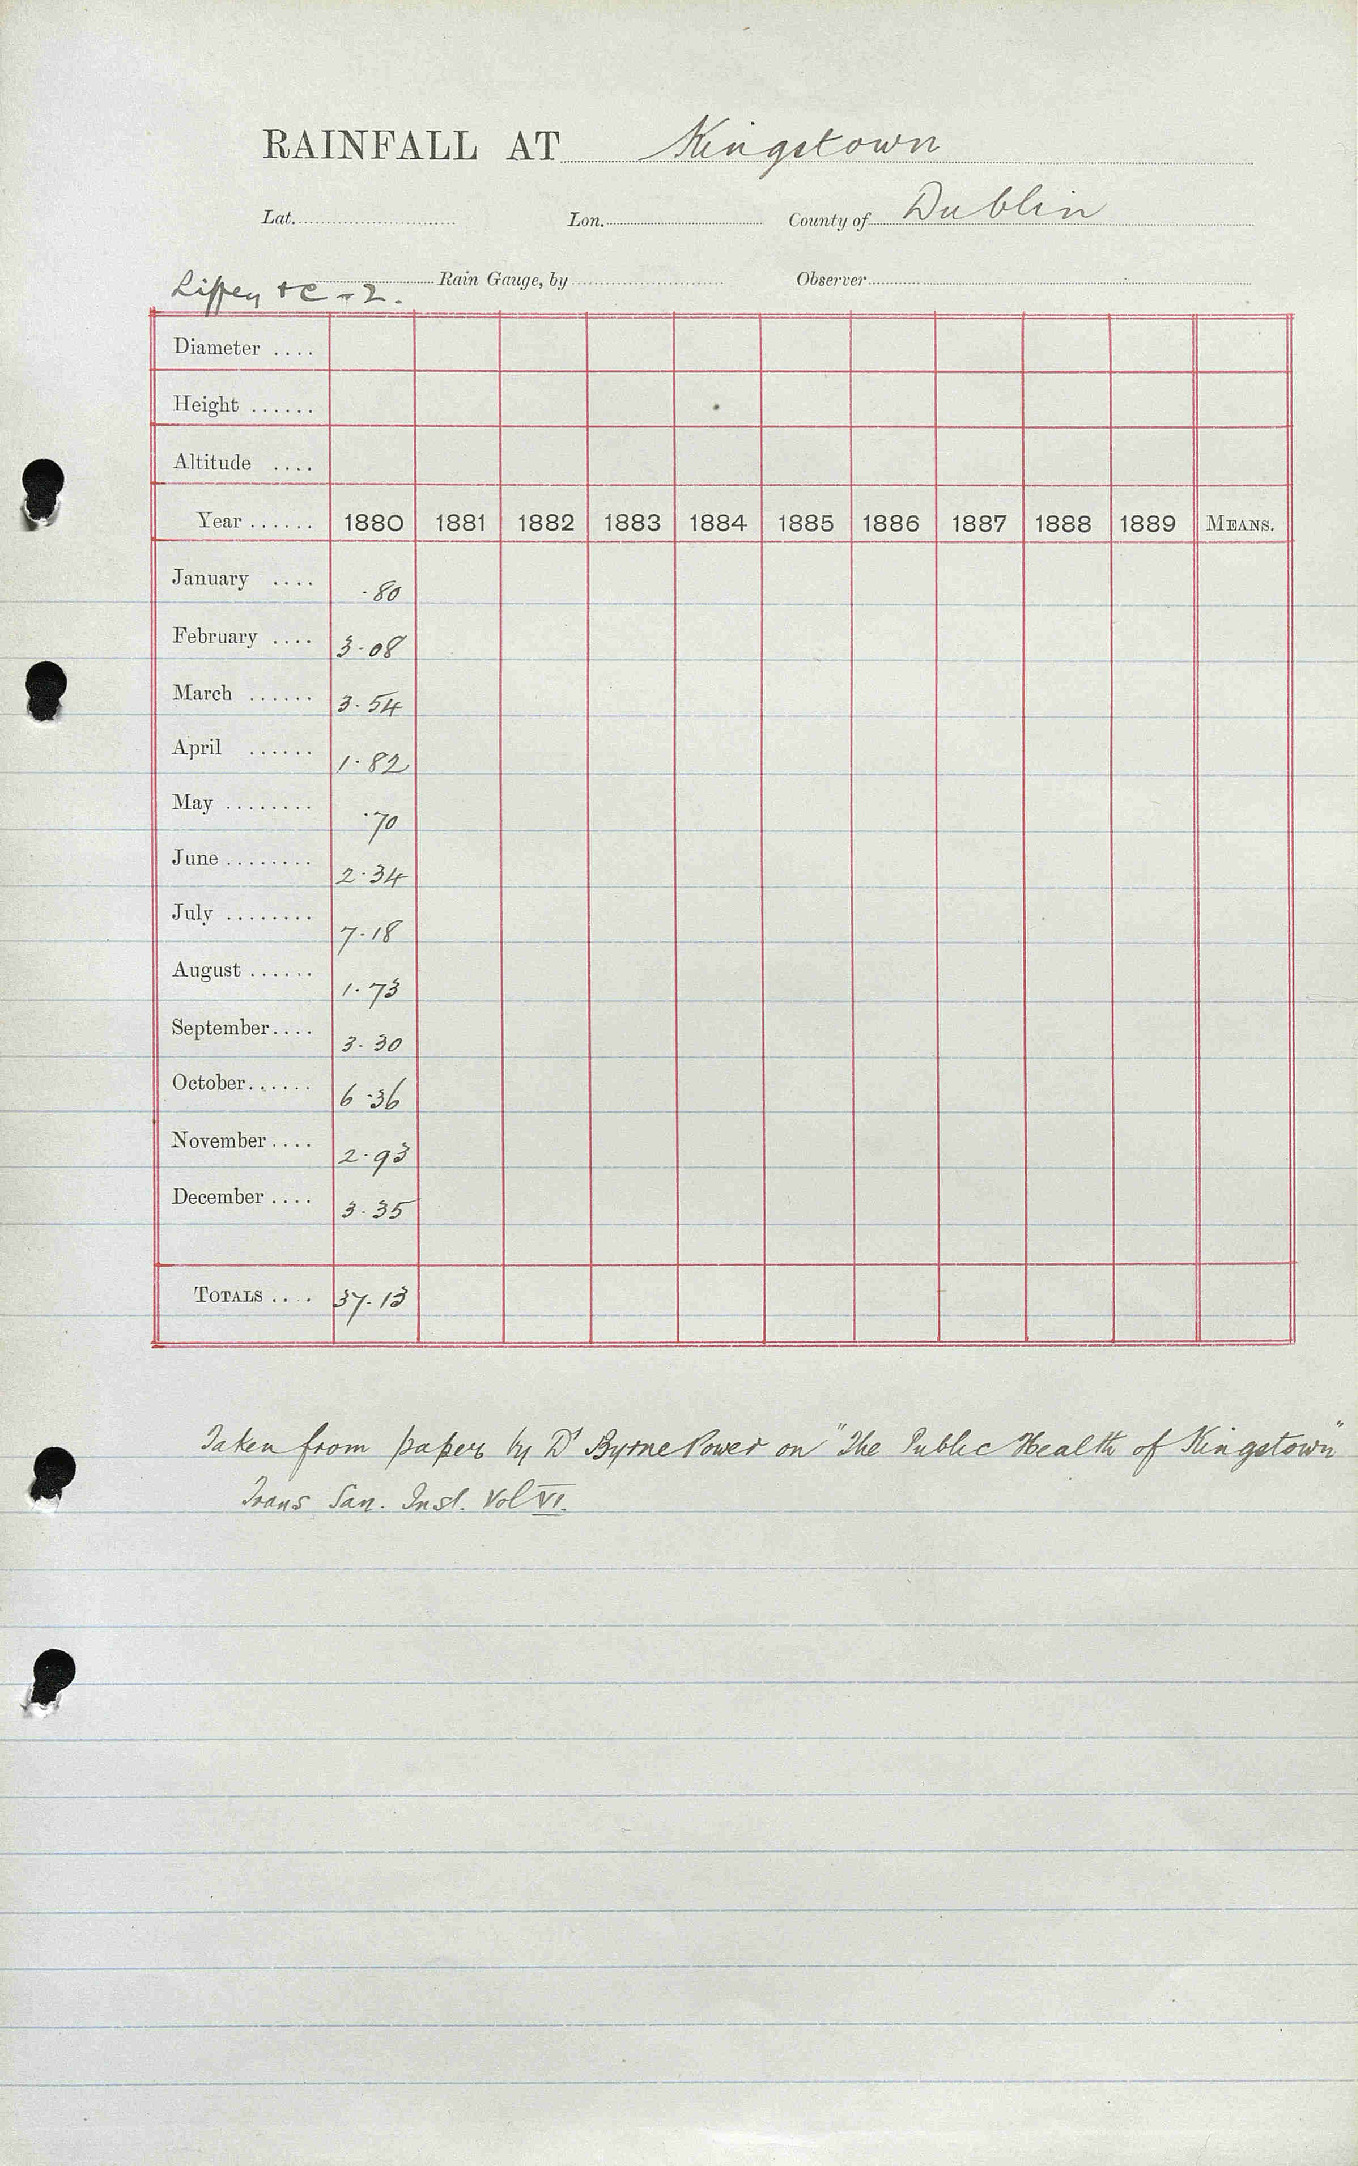 RAINFALL AT Kingstown
Lat. Lon. County of Dublin
Liffey &c - 2. Rain Gauge, by Observer
Diameter ....
Height ......
Altitude ....
Year ...... 1880 1881 1882 1883 1884 1885 1886 1887 1888 1889 MEANS.
January .... .80
February .... 3.08
March ...... 3.54
April ...... 1.82
May ........ .70
June ........ 2.34
July ........ 7.18
August ...... 1.73
September .... 3.30
October ...... 6.36
November .... 2.93
December .... 3.35
TOTALS .... 37.13
Taken from paper by Dr Byrne Power on "The Public Health of Kingstown"
Trans San. Inst. Vol VI.